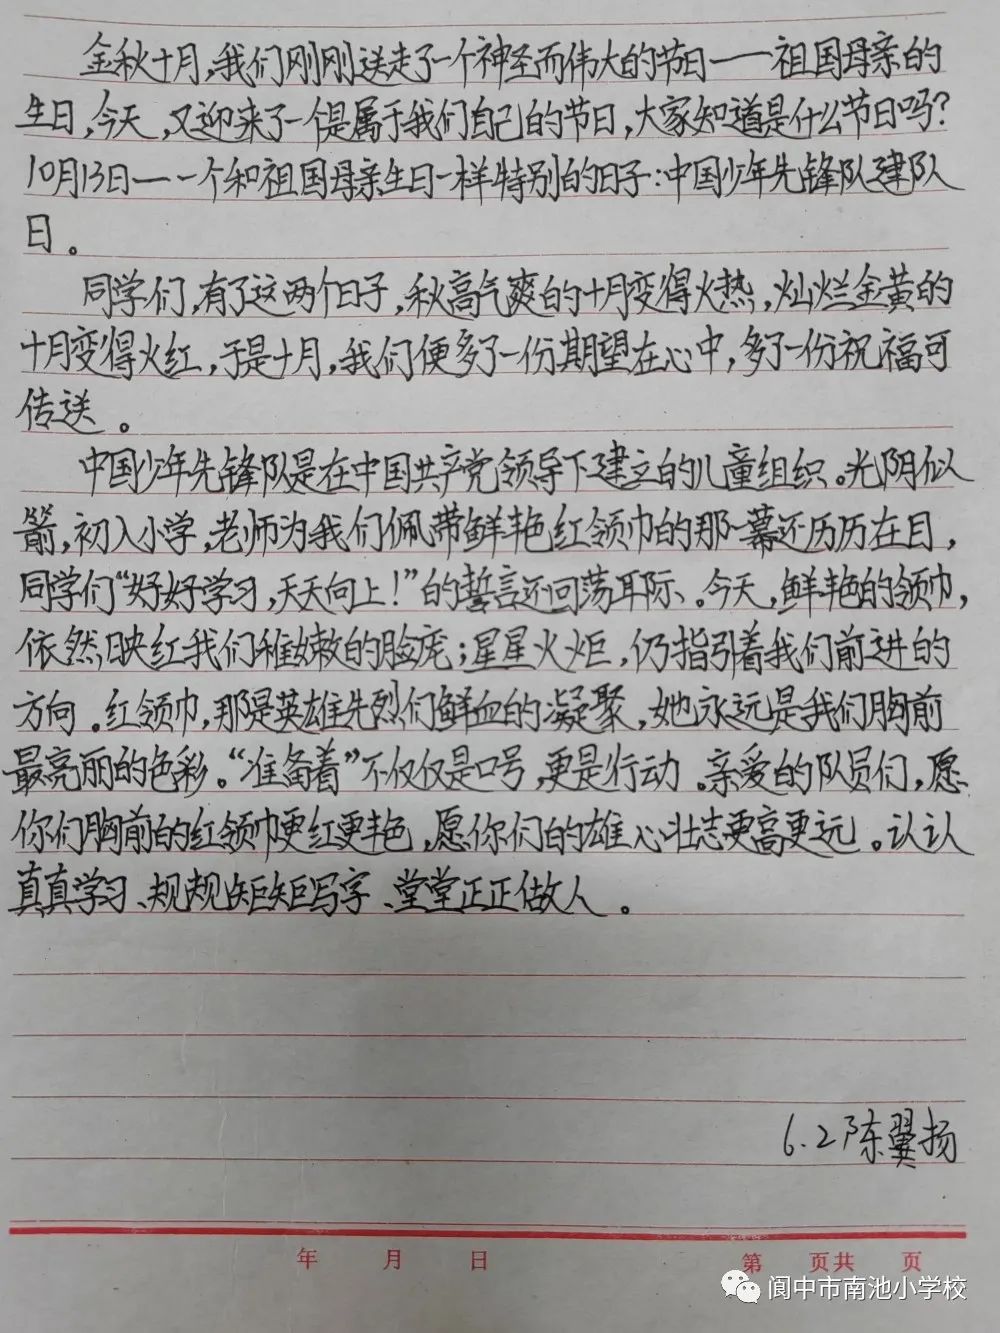 金秋十月，我们刚刚送走了一个神圣而伟大的节日——祖国母亲的
生日，今天，又迎来了一个是属于我们自己的节日，大家知道是什么节日吗？
10月13日——一个和祖国母亲生日一样特别的日子：中国少年先锋队建队
日。
同学们，有了这两个日子，秋高气爽的十月变得火热，灿烂金黄的
十月变得火红，于是十月，我们便多了一份期望在心中，多了一份祝福可
传送。
中国少年先锋队是在中国共产党领导下建立的儿童组织。光阴似
箭，初入小学，老师为我们佩带鲜艳红领巾的那一幕还历历在目，
同学们“好好学习，天天向上！”的誓言还回荡耳际、。今天，鲜艳的领巾，
依然映红我们稚嫩的脸庞；星星火炬，仍指引着我们前进的
方向。红领巾，那是英雄先烈们鲜血的凝聚，她永远是我们胸前
最亮丽的色彩。“准备着”不仅仅是口号，更是行动。亲爱的队员们，愿
你们胸前的红领巾更红更艳，愿你们的雄心壮志更高更远。认认
真真学习、规规矩矩写字、堂堂正正做人。
6.2陈翼扬
年 月 日 第 页共 页
阆中市南池小学校